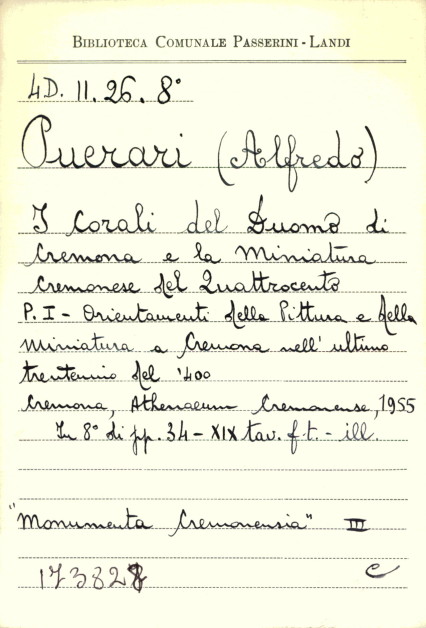 BIBLIOTECA COMUNALE PASSERINI - LANDI
4D. II. 26. 8°
Puerari (Alfredo)
I Corali del Duomo di
Cremona e la Miniatura
Cremonese del Quattrocento
P. I - Orientamenti della Pittura e della
Miniatura a Cremona nell' ultimo
trentennio del '400
Cremona, Athenaeum Cremonense, 1955
In 8° di pp. 34 - XIX tav. f. t. - ill.
"Monumenta Cremonensia" III
C